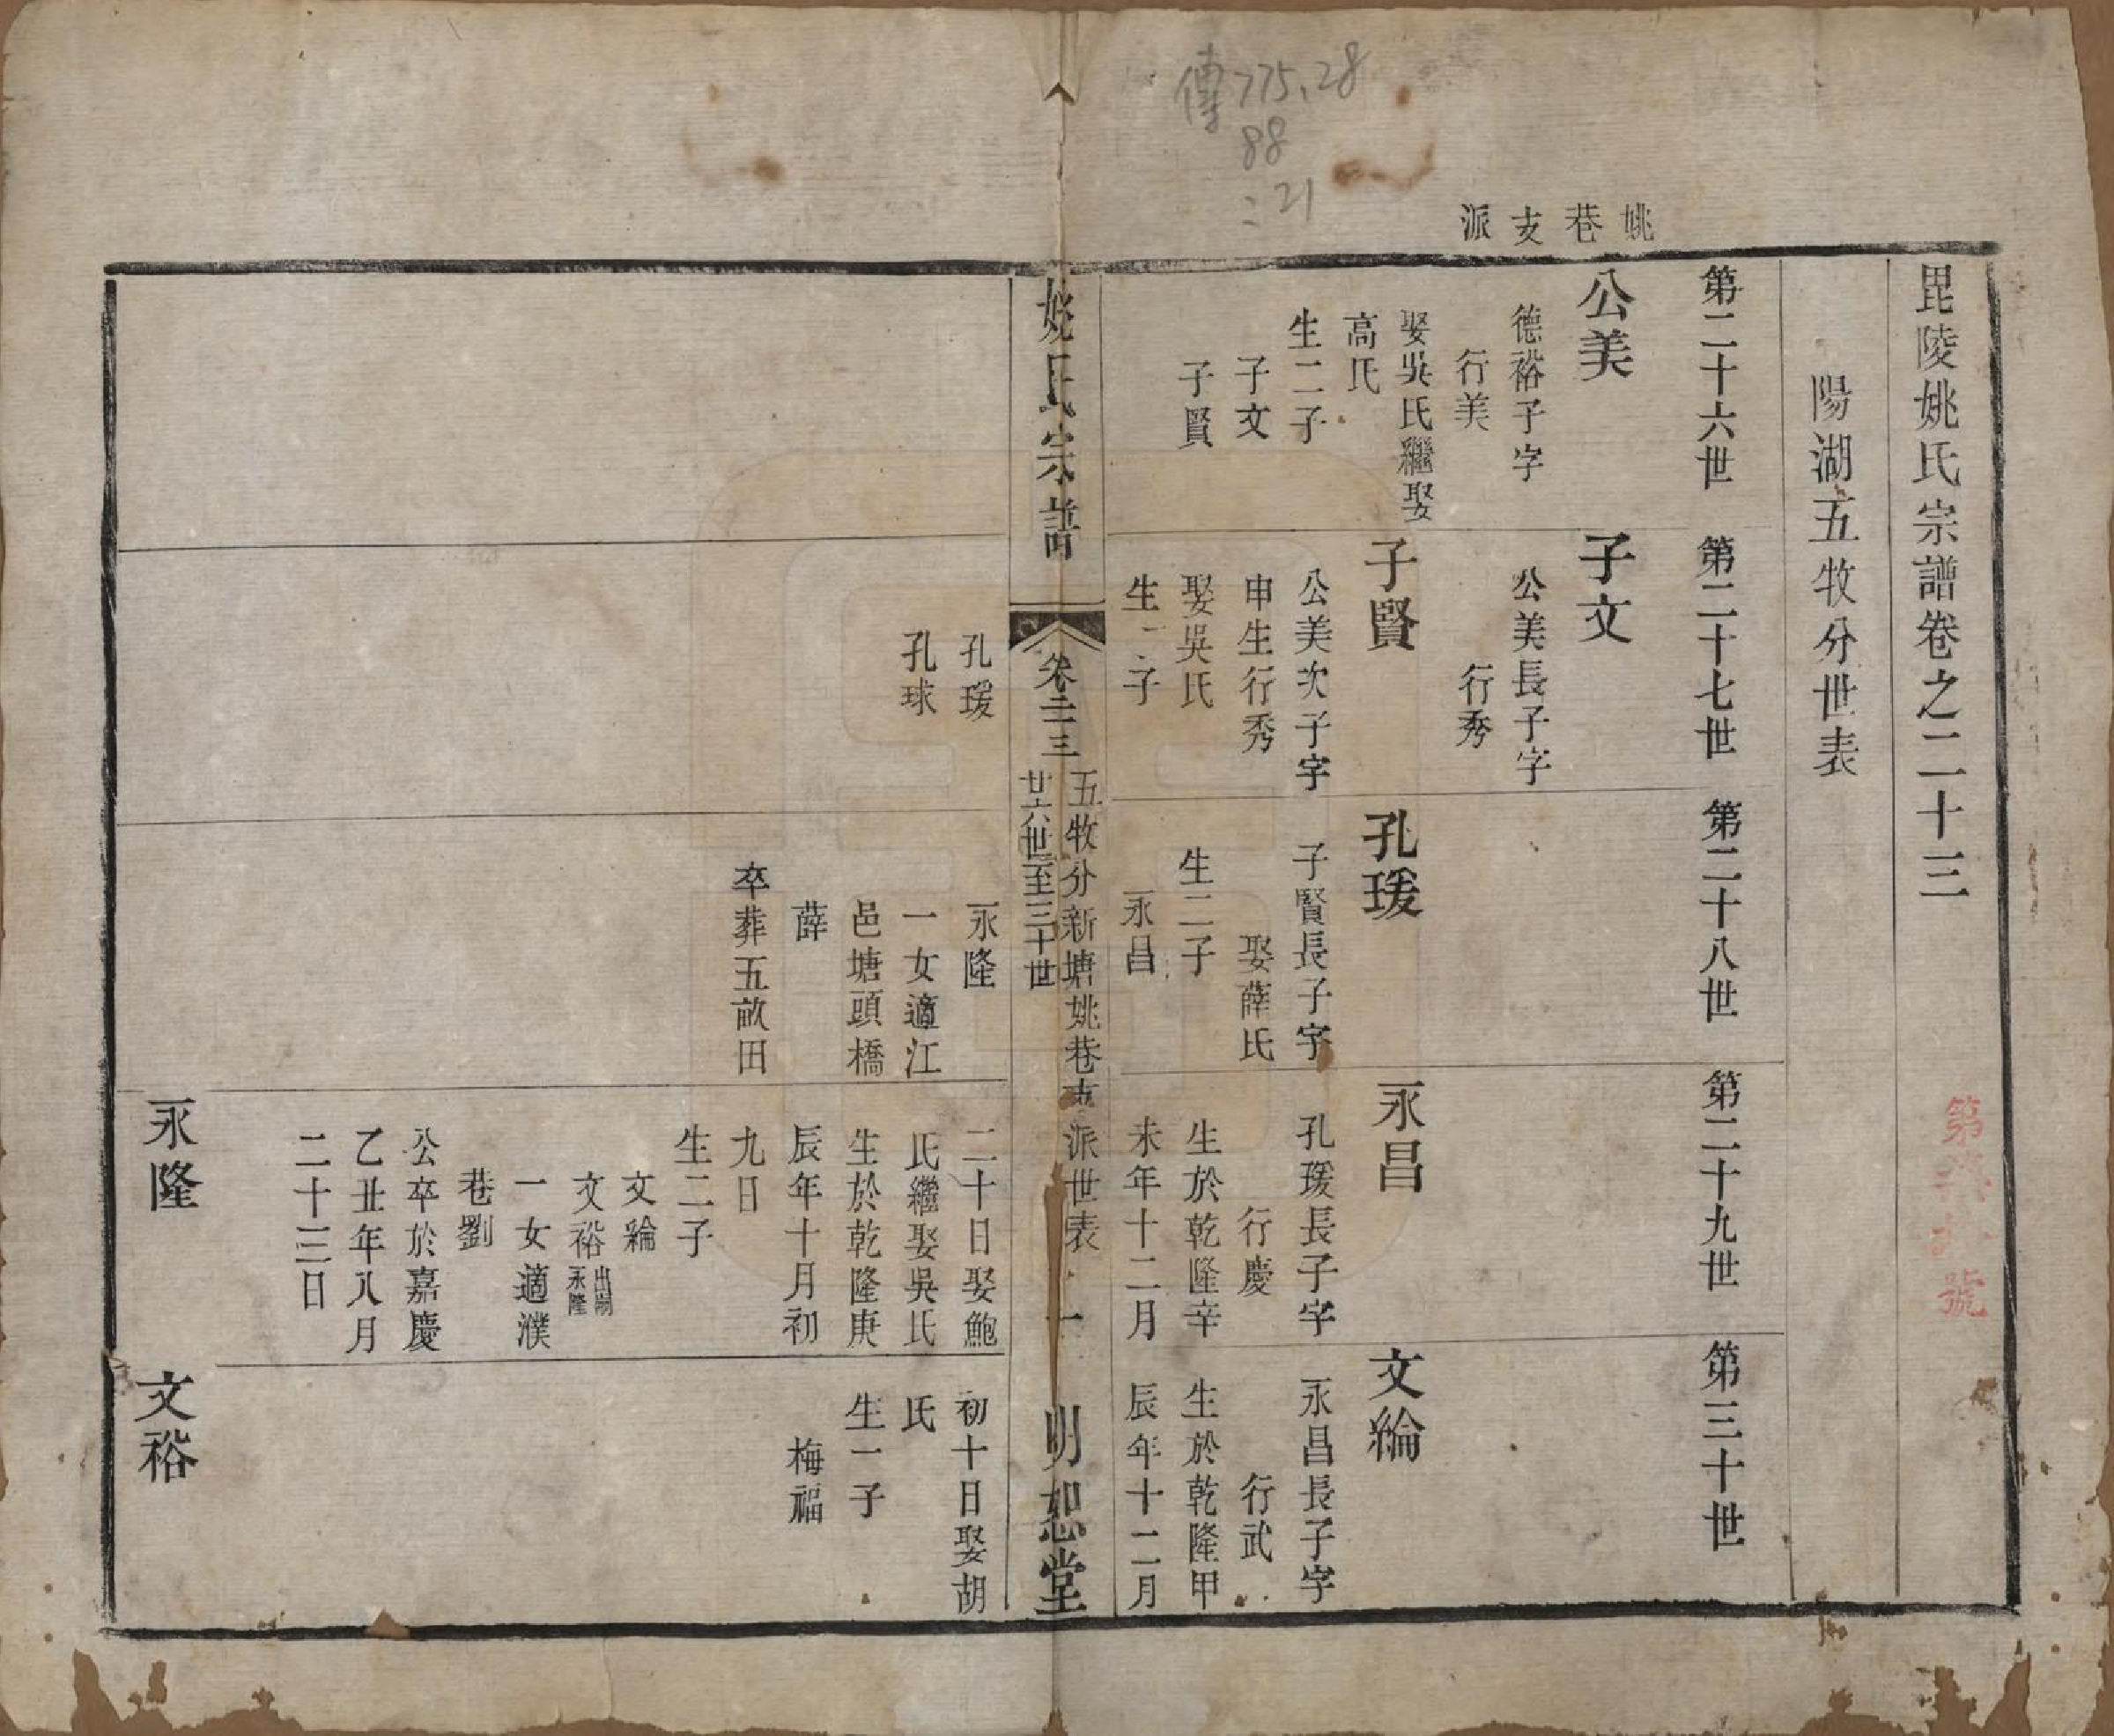 傳775.28
88
:21
姚巷支派
毘陵姚氏宗譜卷之二十三
陽湖五牧分世表
第二十六世
公美
德裕子字
行美
娶吳氏繼娶
高氏
生二子
子文
子賢
第二十七世
子文
公美長子字
行秀
子賢
公美次子字
申生行秀
娶吳氏
生二子
孔瑗
孔球
第二十八世
孔瑗
子賢長子字
娶薛氏
生二子
永昌
永隆
一女適江
邑塘頭橋
薛
卒葬五畝田
第二十九世
永昌
孔瑗長子字
行慶
生於乾隆辛
未年十二月
二十日娶鮑
氏繼娶吳氏
生於乾隆庚
辰年十月初
九日
生二子
文綸
文裕出嗣永隆
一女適濮
巷劉
公卒於嘉慶
乙丑年八月
二十三日
永隆
第三十世
文綸
永昌長子字
行武
生於乾隆甲
辰年十二月
初十日娶胡
氏
生一子
梅福
文裕
姚氏宗譜
卷二三
五牧分新塘姚巷支派世表
廿六世至三十世
一
明恕堂
第
號